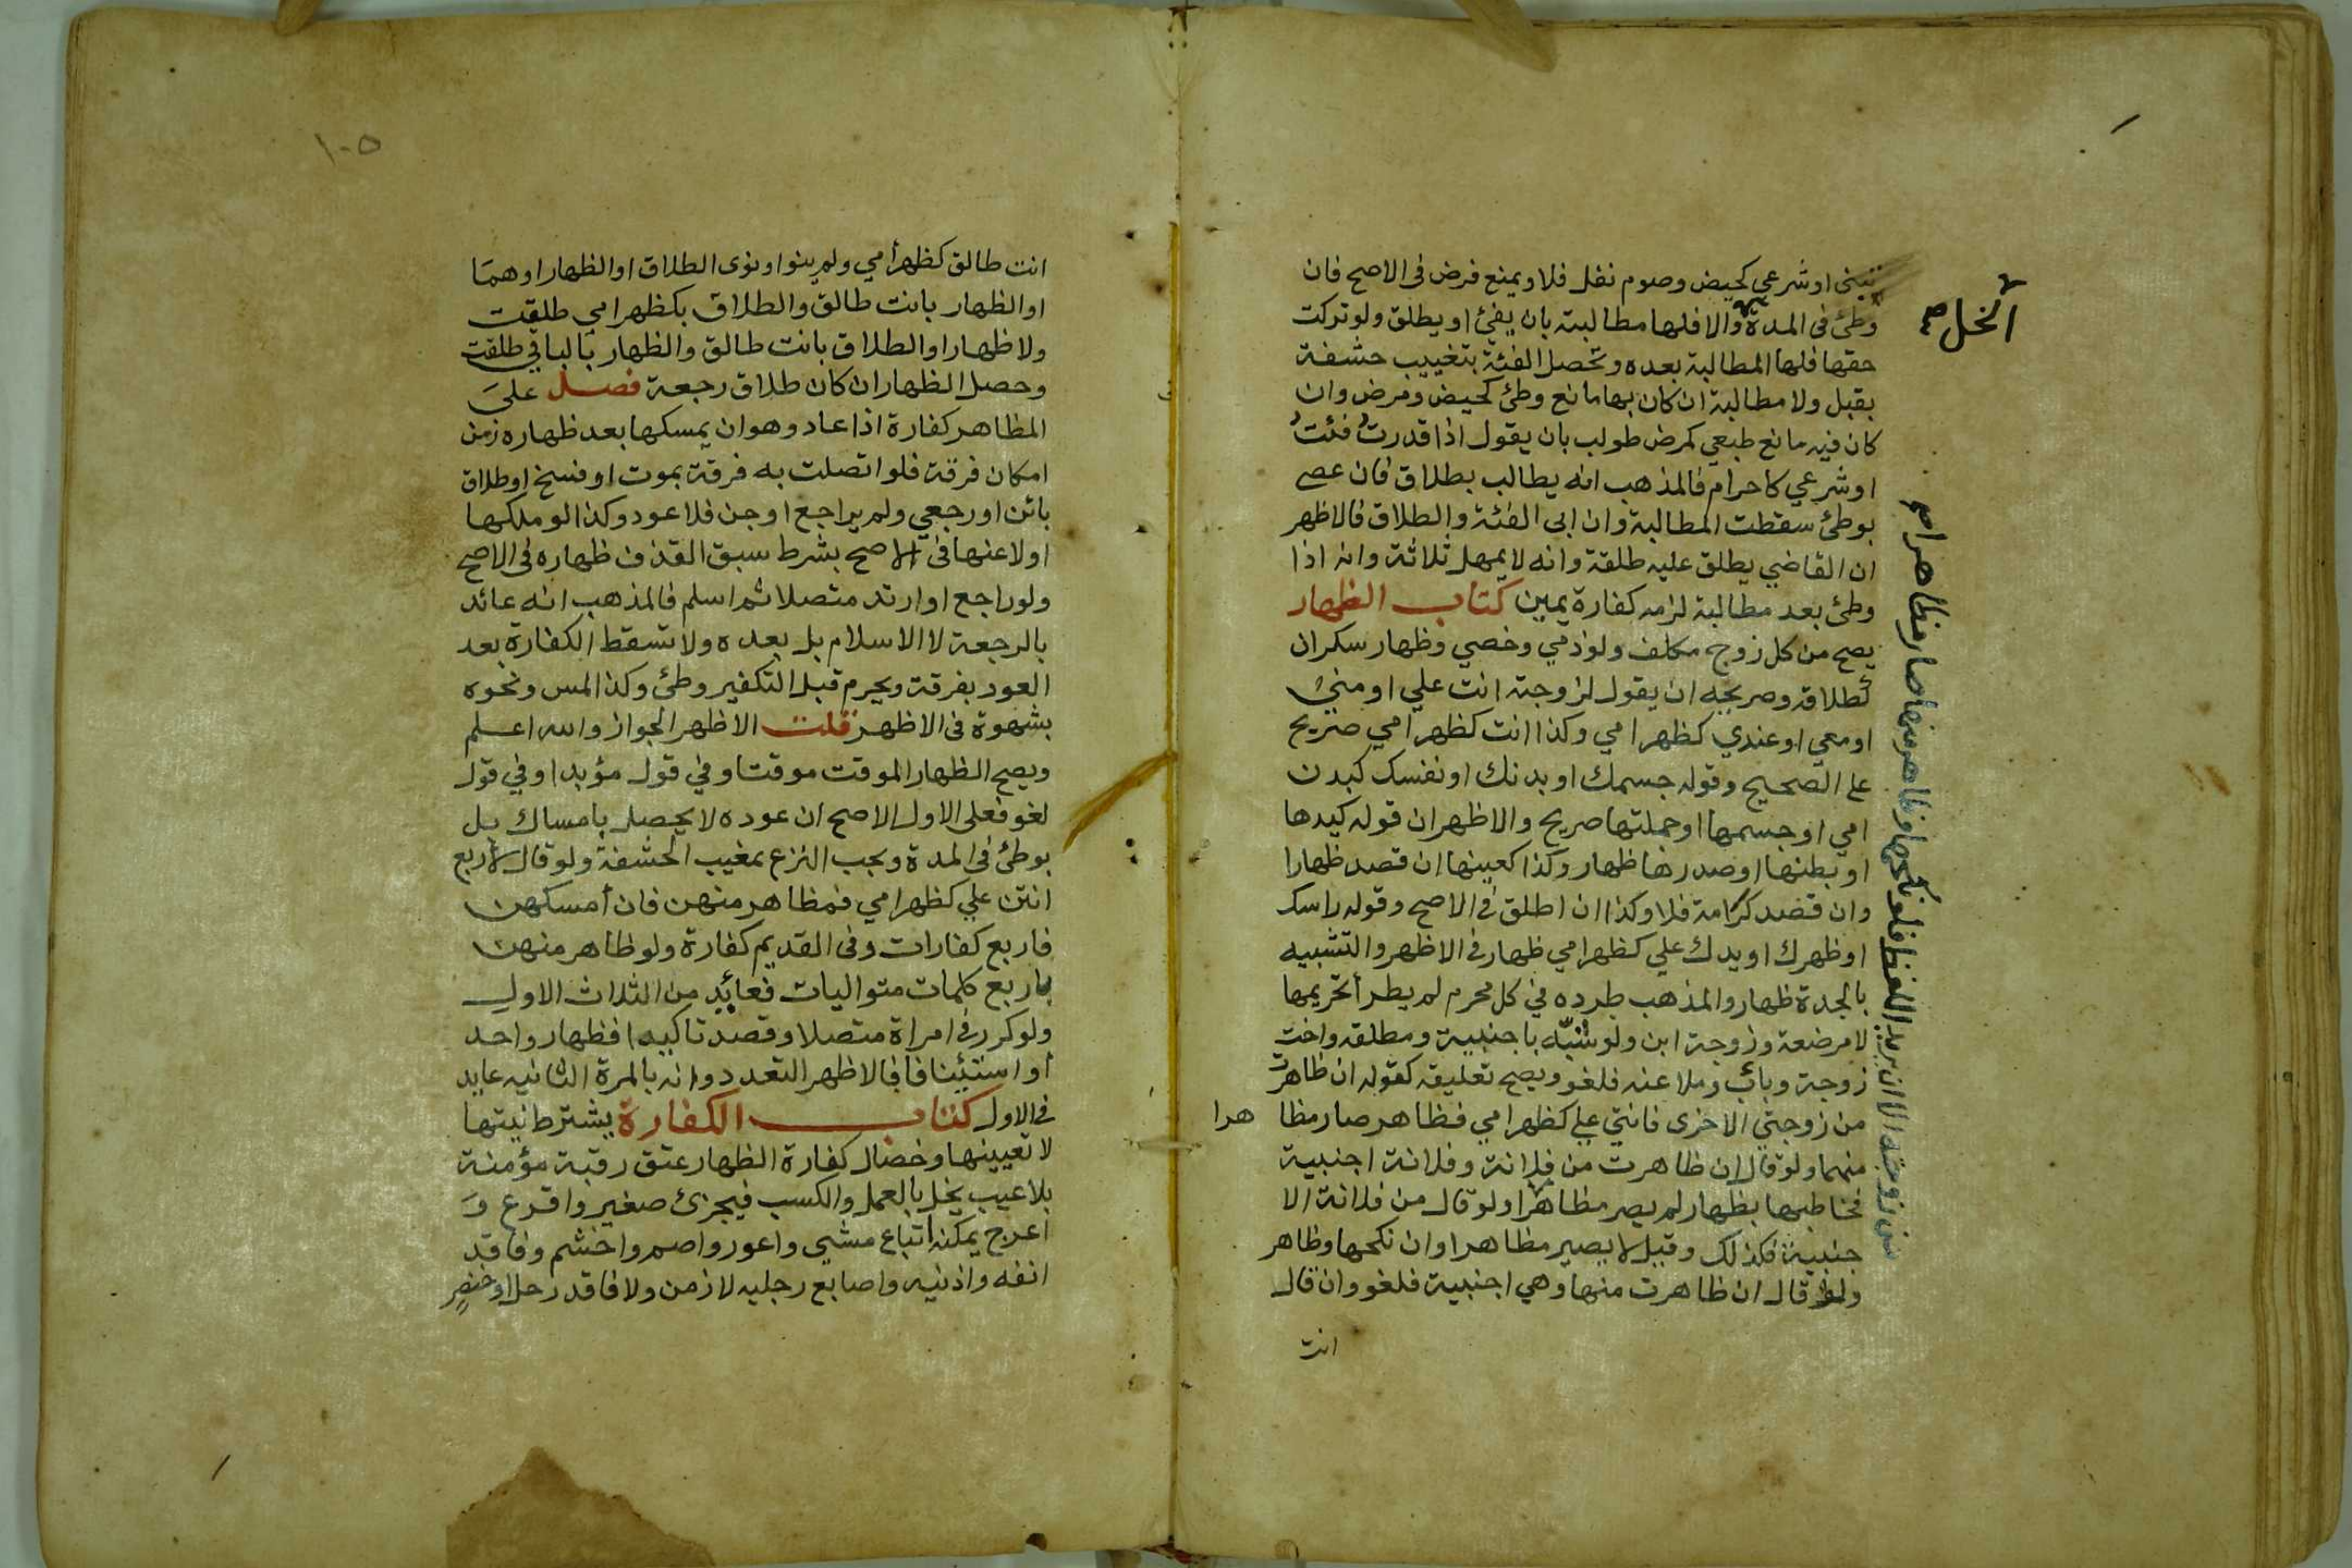 تبنى او شرعي كحيض وصوم نفل فلا ويمنع فرض فى الاصح فان
وطئ فى المدة والا فلها مطالبته بان يفئ او يطلق ولو تركت
انحل صح
حقها فلها المطالبة بعده وتحصل الفئة بتغييب حشفة
بقبل ولا مطالبة ان كان بها مانع وطئ كحيض ومرض وان
كان فيه مانع طبعي كمرض طولب بان يقول اذا قدرت فئت
او شرعي كاحرام فالمذهب انه يطالب بطلاق فان عصى
بوطئ سقطت المطالبة وان ابى الفئة والطلاق فالاظهر
ان القاضي يطلق عليه طلقة وانه لا يمهل ثلاثة وانه اذا
وطئ بعد مطالبة لزمه كفارة يمين كتاب الظهار
يصح من كل زوج مكلف ولو ذمي وخصي وظهار سكران
كطلاقه وصريحه ان يقول لزوجته انت علي او مني
او معي او عندي كظهر امي وكذا انت كظهر امي صريح
على الصحيح وقوله جسمك او بدنك او نفسك كبدن
امي او جسمها او جملتها صريح والاظهر ان قوله كيدها
او بطنها او صدرها ظهار وكذا كعينها ان قصد ظهارا
وان قصد كرامة فلا وكذا ان اطلق فى الاصح وقوله راسك
او ظهرك او يدك علي كظهر امي ظهار فى الاظهر والتشبيه
بالجدة ظهار والمذهب طرده في كل محرم لم يطرأ تحريمها
لا مرضعة وزوجة ابن ولو شبه باجنبية ومطلقة واخت
زوجة وباب وملاعنه فلغو ويصح تعليقه كقوله ان ظاهرت
من زوجتي الاخرى فانتي علي كظهر امي فظاهر صار مظا هرا
منهما ولو قال ان ظاهرت من فلانة وفلانة اجنبية
فخاطبها بظهار لم يصر مظاهرا ولو قال من فلانة الا
جنبية فكذلك وقيل لا يصير مظاهرا وان نكحها وظاهر
ولو قال ان ظاهرت منها وهي اجنبية فلغو وان قال
انت
من زوجته الا ان يريد اللفظ فلو نكحها وظاهر منها صار مظاهرا صح
١٠٥
انت طالق كظهر امي ولم ينو او نوى الطلاق او الظهار او هما
او الظهار بانت طالق والطلاق بكظهر امي طلقت
ولا ظهار او الطلاق بانت طالق والظهار بالباقي طلقت
وحصل الظهار ان كان طلاق رجعة فصل على
المظاهر كفارة اذا عاد وهو ان يمسكها بعد ظهاره زمن
امكان فرقة فلو اتصلت به فرقة بموت او فسخ او طلاق
بائن او رجعي ولم يراجع او جن فلا عود وكذا لو ملكها
او لاعنها فى الاصح بشرط سبق القذف ظهاره فى الاصح
ولو راجع او ارتد متصلا ثم اسلم فالمذهب انه عائد
بالرجعة لا الاسلام بل بعده ولا تسقط الكفارة بعد
العود بفرقة ويحرم قبل التكفير وطئ وكذا المس ونحوه
بشهوة فى الاظهر قلت الاظهر الجواز والله اعلم
ويصح الظهار الموقت موقتا وفي قول مؤبدا وفي قول
لغو فعلى الاول الاصح ان عوده لا يحصل بامساك بل
بوطئ في المدة ويجب النزع بمغيب الحشفة ولو قال لاربع
انتن علي كظهر امي فمظاهر منهن فان أمسكهن
فاربع كفارات وفى القديم كفارة ولو ظاهر منهن
باربع كلمات متواليات فعائد من الثلاث الاول
ولو كرر فى امراة متصلا وقصد تاكيدا فظهار واحد
او استئنافا فالاظهر التعدد وانه بالمرة الثانيه عايد
فى الاول كتاب الكفارة يشترط نيتها
لا تعيينها وخصال كفارة الظهار عتق رقبة مؤمنة
بلا عيب يخل بالعمل والكسب فيجزئ صغير واقرع و
اعرج يمكنه اتباع مشي واعور واصم واخشم وفاقد
انفه واذنيه واصابع رجليه لا زمن ولا فاقد رجل او خنصر